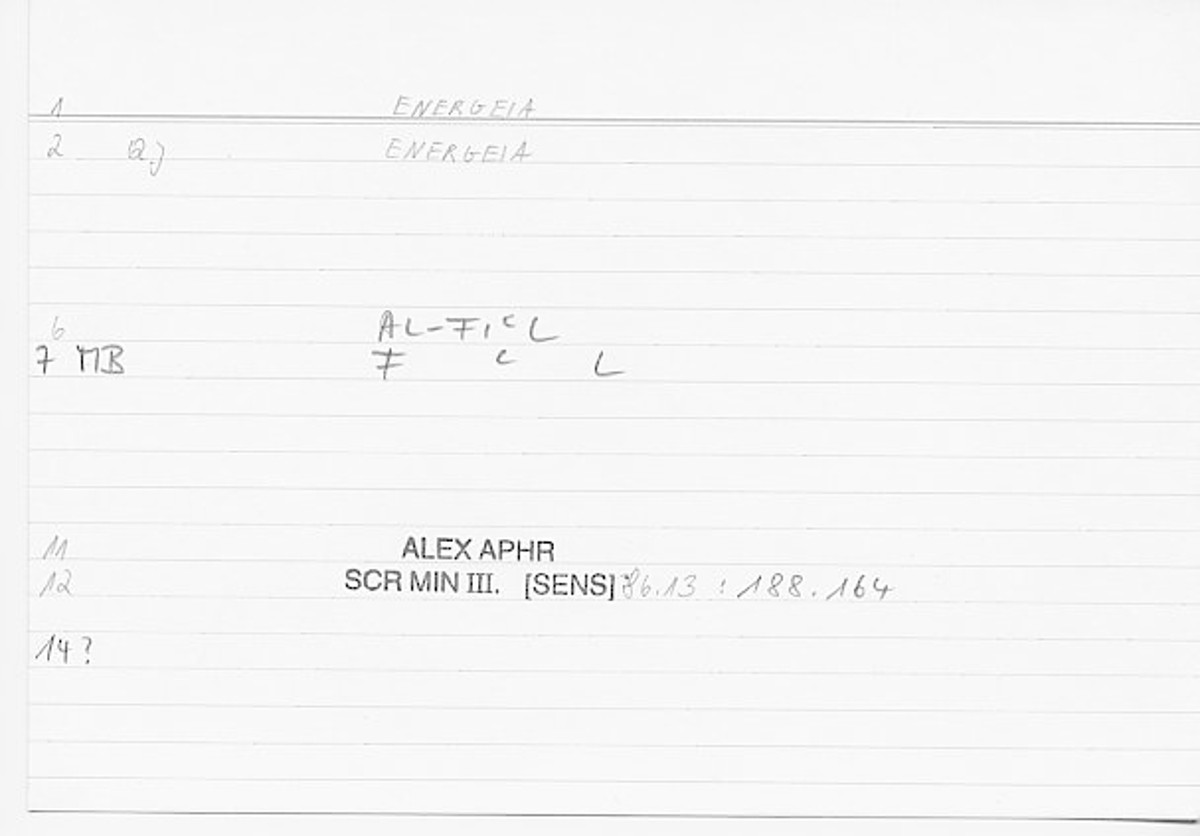 1 ENERGEIA
2 a.) ENERGEIA
6 AL-FIᶜL
7 MB F ᶜ L
11 ALEX APHR
12 SCR MIN III. [SENS] 86.13 : 188.164
14?